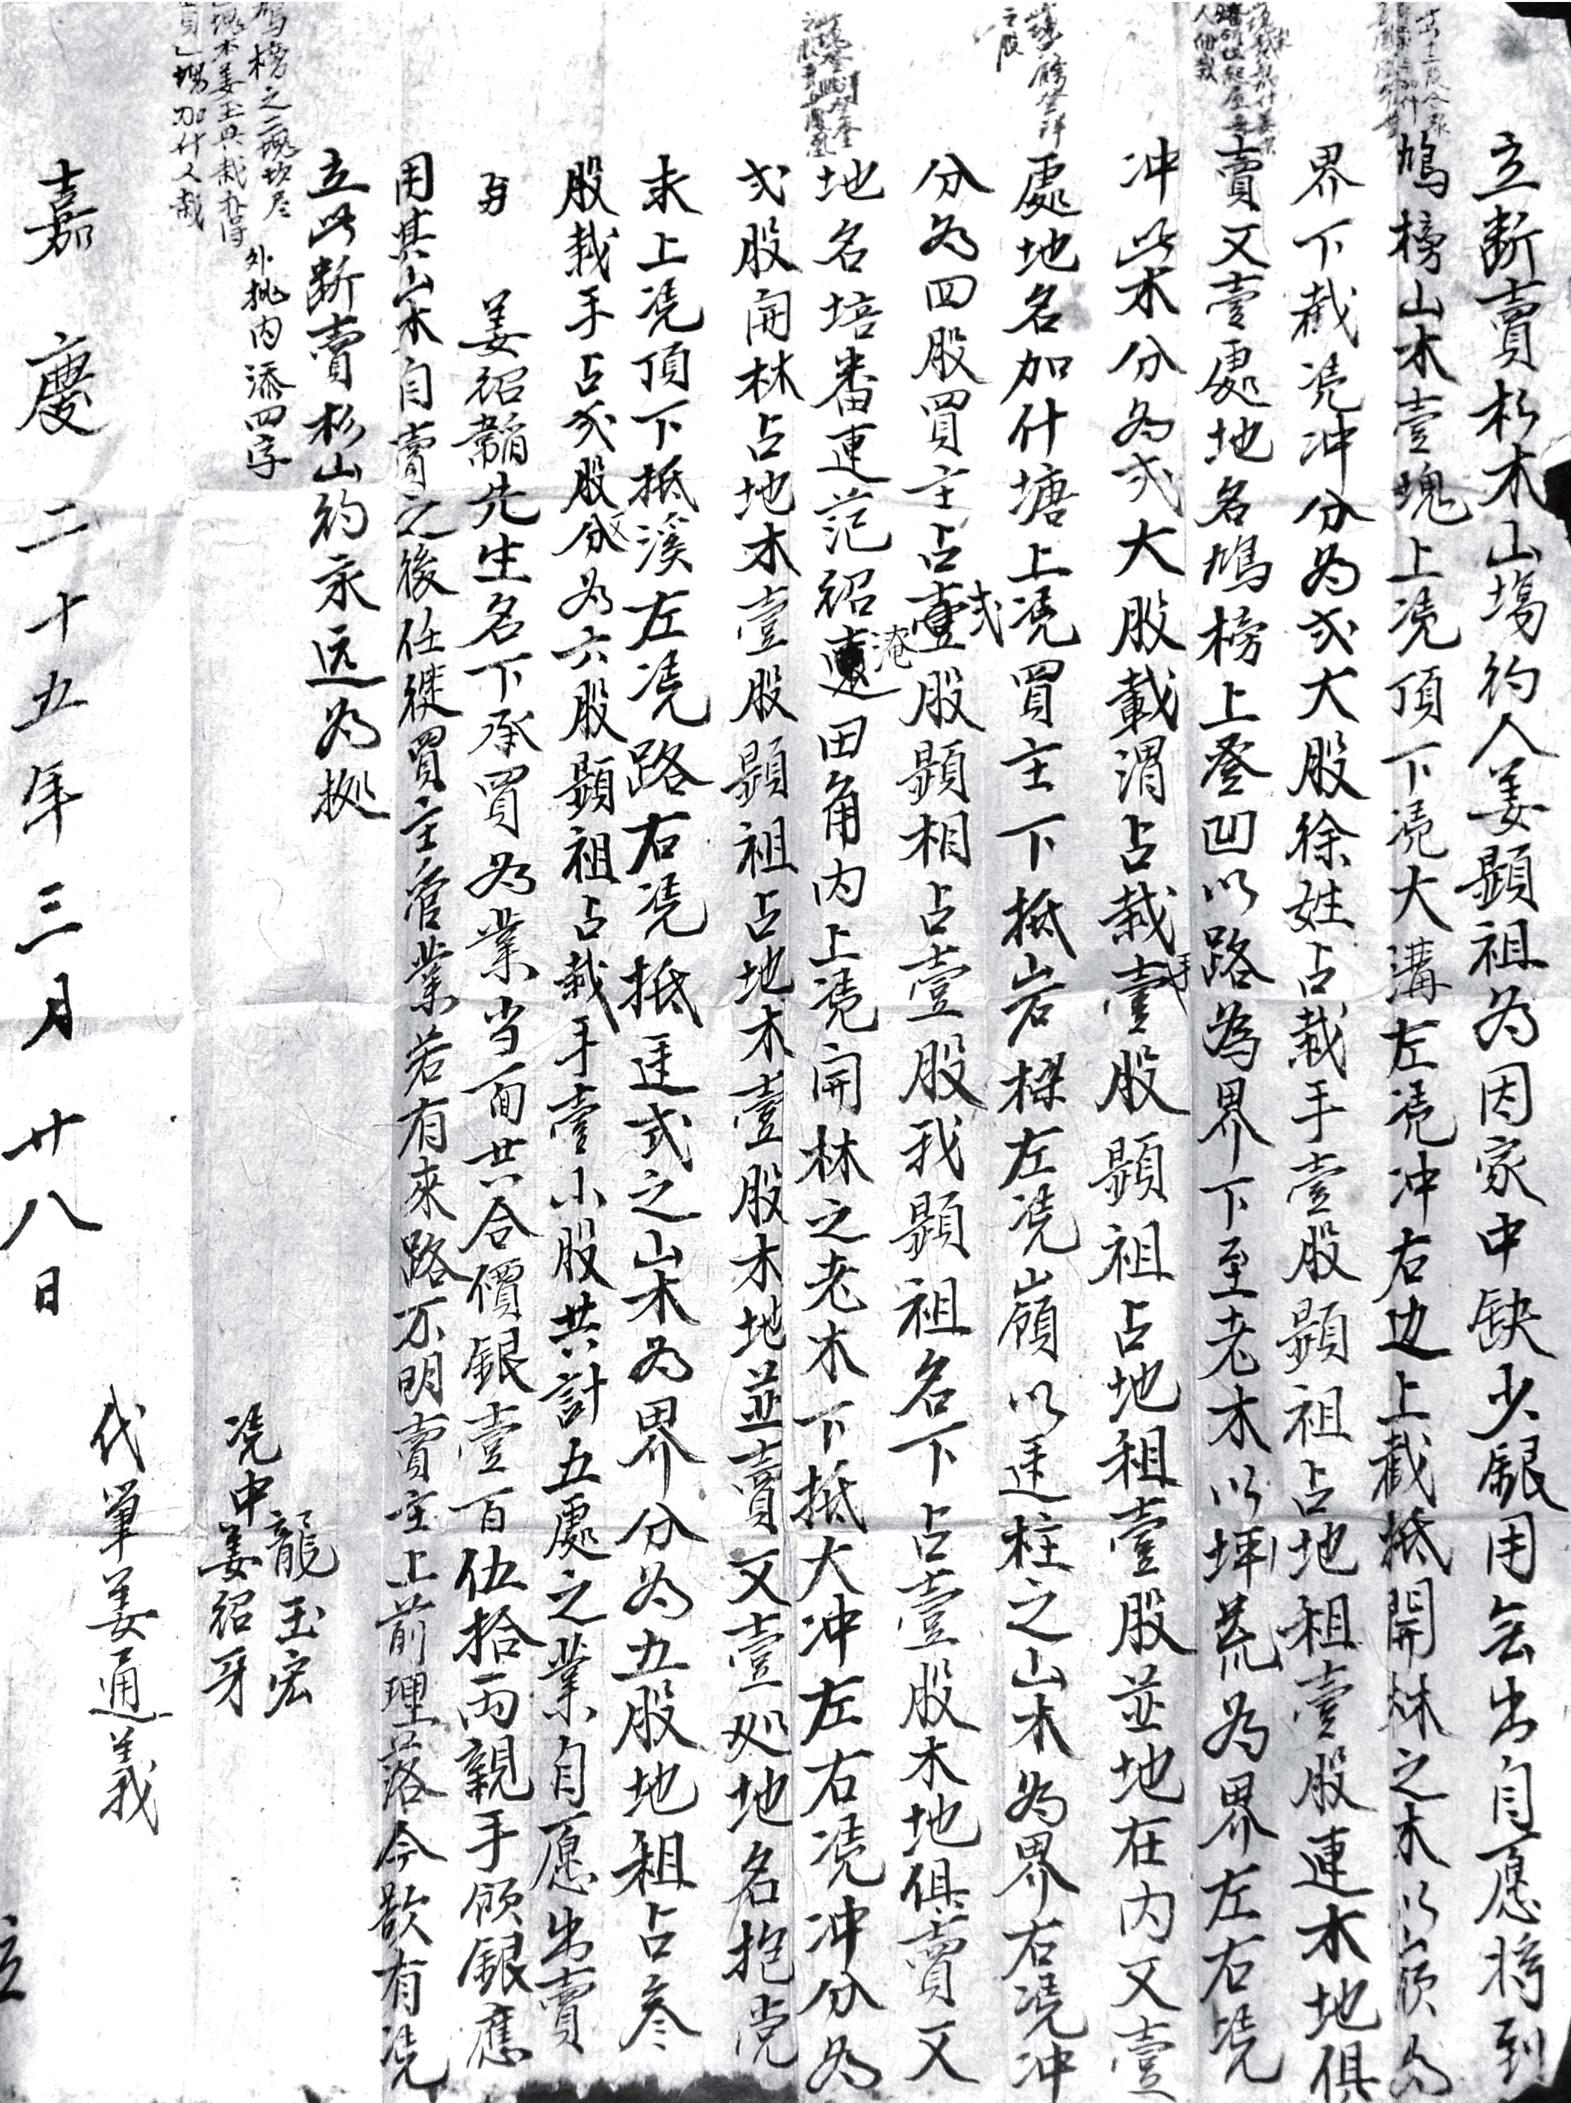 立断賣杉木山塲約人姜顕祖为因家中缺少銀用無出自愿將到
鳩榜山木壹塊上凴頂下凴大溝左凴冲右边上截抵開林之木以嶺为
界下截凴冲分为弍大股徐姓占栽手壹股顕祖占地租壹股連木地俱
賣又壹處地名鳩榜上登凹以路為界下至老木以坪荒为界左右凴
冲此木分为弍大股載渭占栽手壹股顕祖占地租壹股並地在内又壹
處地名加什塘上凴買主下抵岩樑左凴嶺以迬柱之山木为界右凴冲
分为四股買主占弍股顕相占壹股我顕祖名下占壹股木地俱賣又
地名培番連范紹淹田角内上凴開林之老木下抵大冲左右凴冲分为
弍股開林占地木壹股顕祖占地木壹股木地並賣又壹处地名抱党
求上凴頂下抵溪左凴路右凴抵迬式之山木为界分为五股地租占叁
股栽手占弍股又分为六股顕祖占栽手壹小股共計五處之業自愿出賣
與 姜紹韜先生名下承買为業当面共合價銀壹百伍拾両親手領銀應
用其山木自賣之後任從買主管業若有來路不明賣主上前理落今欲有凴
立此断賣杉山約永远为拠
外批内添四字
鳩榜之二塊坎尽
塲加什又栽
凴中 龍玉宏
姜紹牙
代筆姜通義
嘉慶二十五年三月廿八日
立